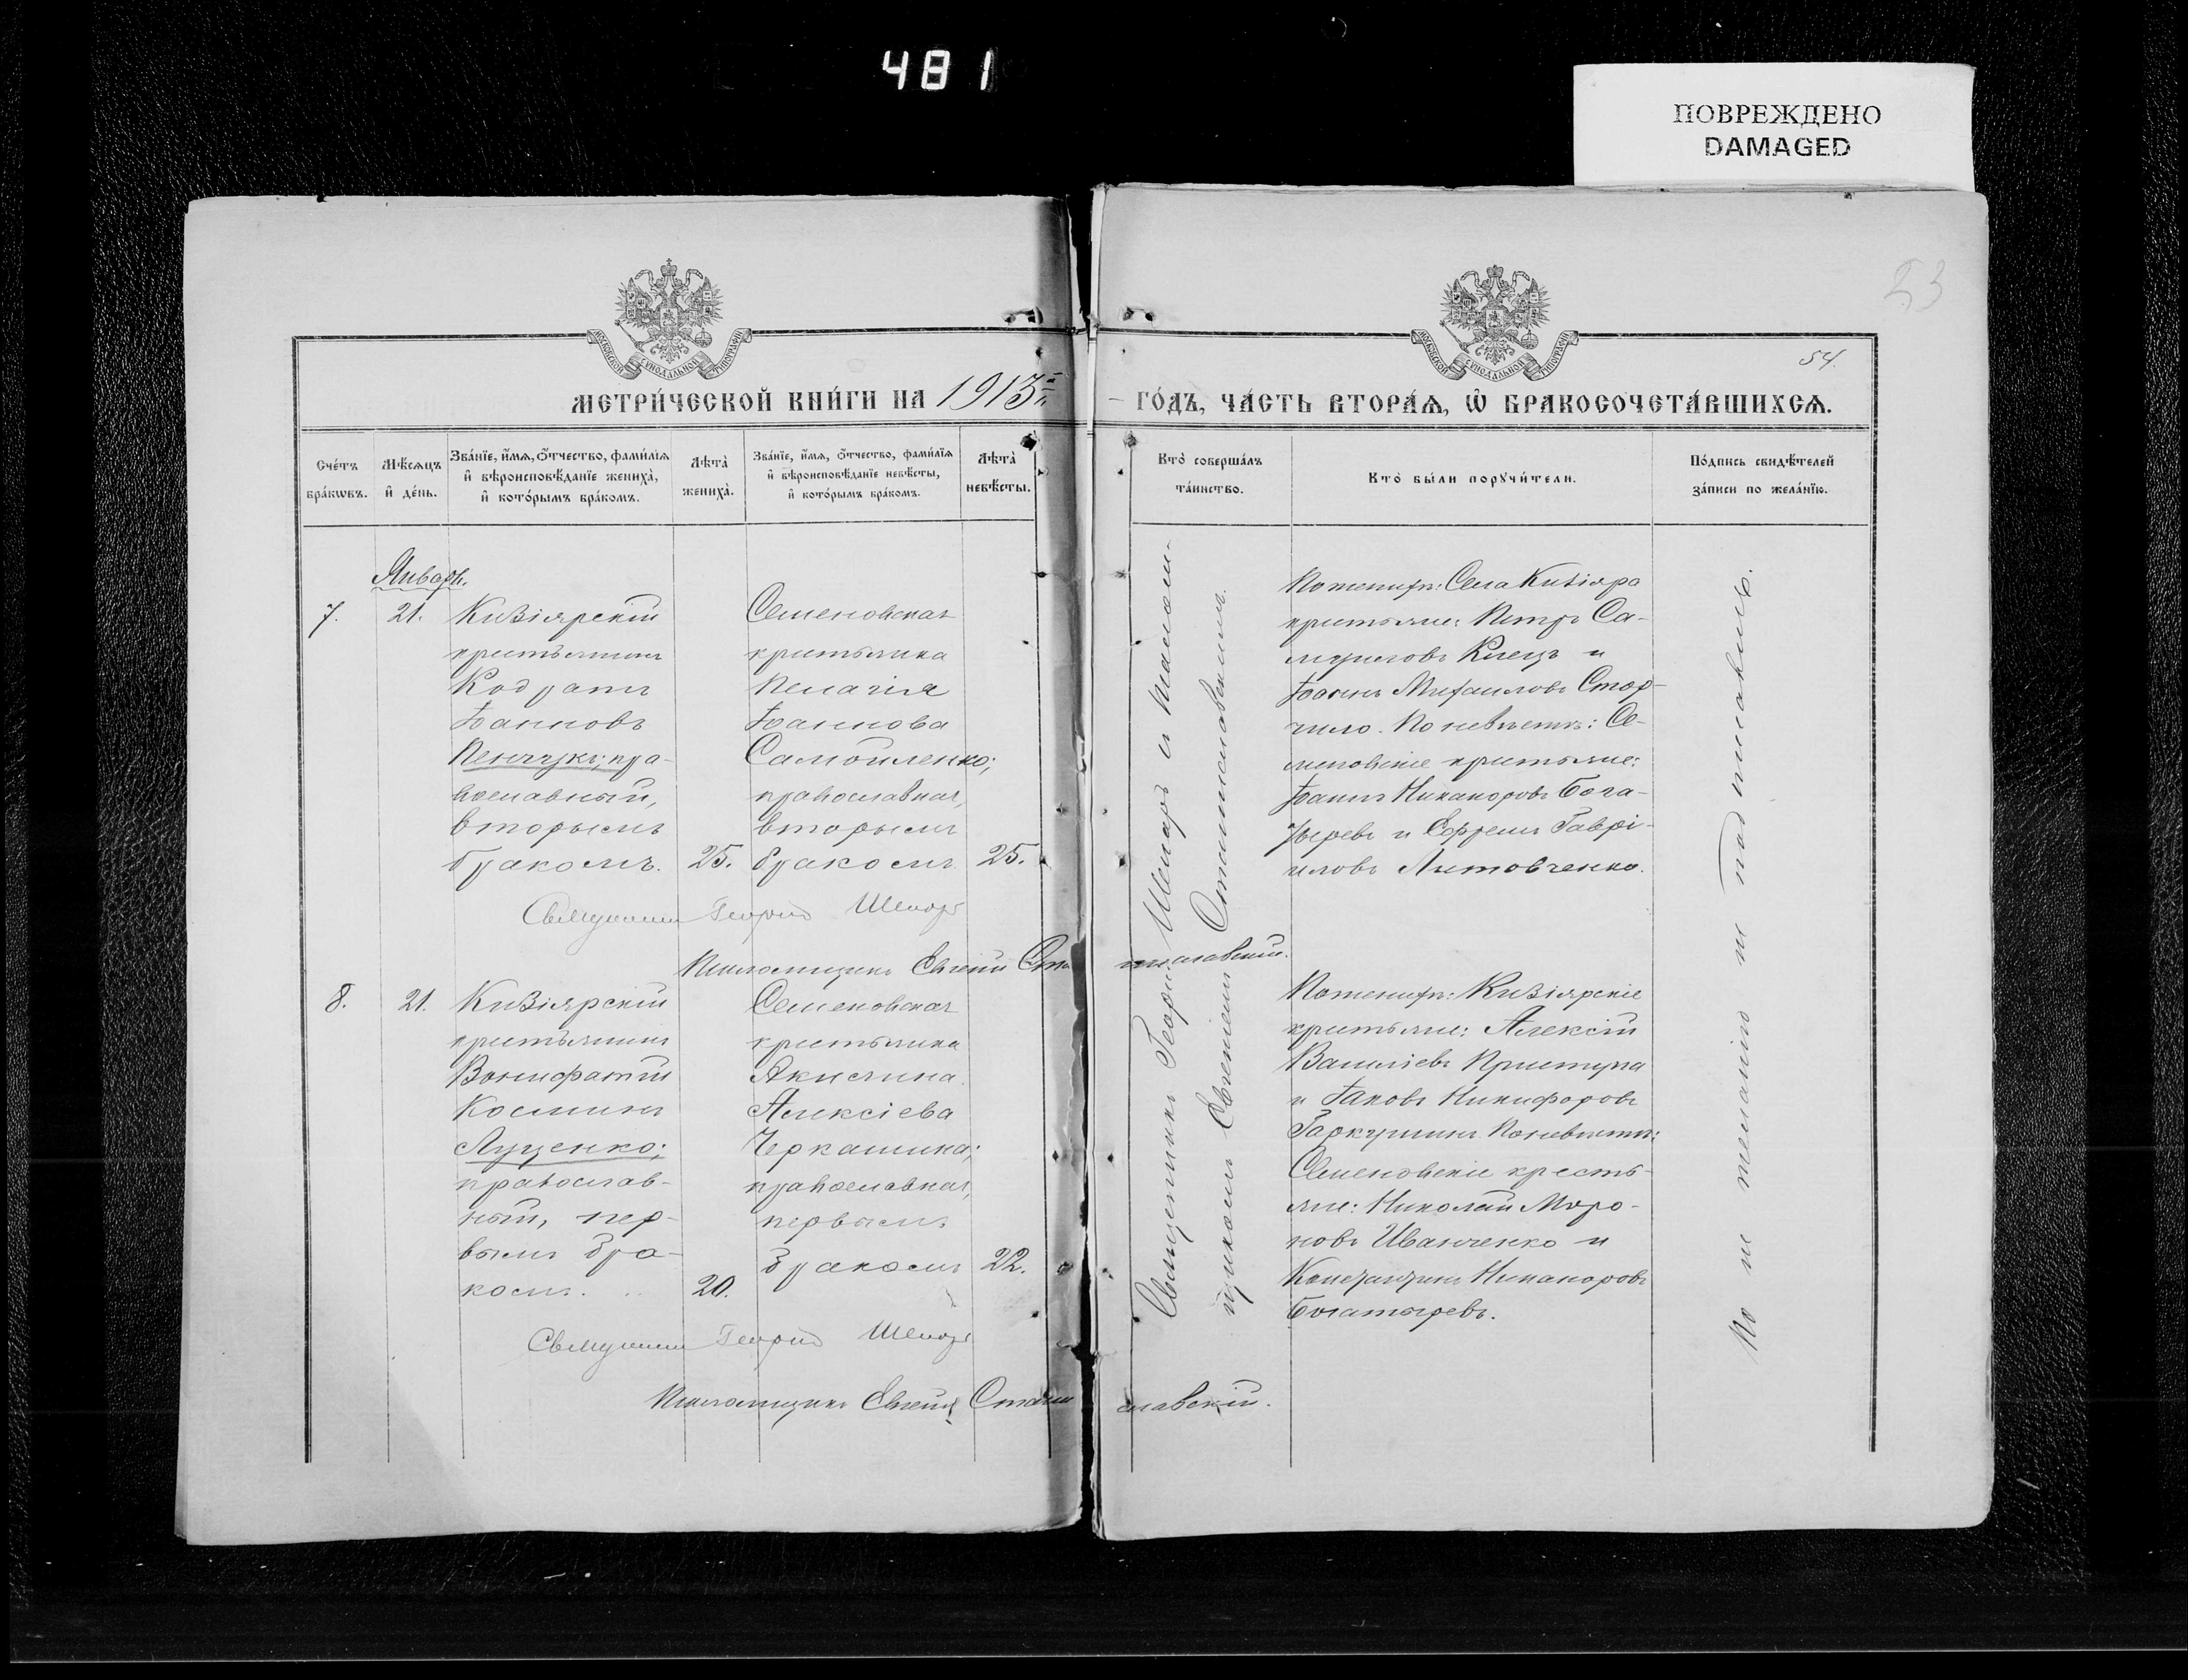 481
ПОВРЕЖДЕНО
DAMAGED
53
54.
МЕТРИ́ЧЕСКОЙ КНИ́ГИ НА 1913й
ГО́ДЪ, ЧА́СТЬ ВТОРА́Ѧ, Ѡ҆ БРАКОСОЧЕТА́ВШИХСѦ.
Сче́тъ бра́кѡвъ.
Мѣ́сѧцъ и҆ де́нь.
Зва́нїе, и҆́мѧ, ѻ҆́тчество, фами́лїѧ
и҆ вѣроисповѣ́данїе жениха̀,
и҆ кото́рымъ бра́комъ.
Лѣта̀ жениха̀.
Зва́нїе, и҆́мѧ, ѻ҆́тчество, фами́лїѧ
и҆ вѣроисповѣ́данїе невѣ́сты,
и҆ кото́рымъ бра́комъ.
Лѣта̀ невѣ́сты.
Кто̀ соверша́лъ та́инство.
Кто̀ бы́ли порꙋчи́тели.
По́дпись свидѣ́телей
за́писи по жела́нїю.
Январь.
7.
21.
Кизіярскій
крестьянинъ
Кодратъ
Іоанновъ
Пенчукъ; пра-
вославный,
вторымъ
бракомъ.
25.
Семеновская
крестьянка
Пелагія
Іоаннова
Самойленко;
православная,
вторымъ
бракомъ
25.
По женихѣ: Села Кизіяра
крестьяне: Петръ Са-
муиловъ Клецъ и
Іоаннъ Михаиловъ Стор-
чило. По невѣстѣ: Се-
меновскіе крестьяне:
Іоаннъ Никаноровъ Бога-
тыревъ и Ефремъ Гаврі-
иловъ Литовченко.
Священникъ Георгій Шепаръ
Псаломщикъ Евгеній Станиславскій.
8.
21.
Кизіярскій
крестьянинъ
Вонифатій
Косминъ
Луценко;
православ-
ный, пер-
вымъ бра-
комъ.
20.
Семеновская
крестьянка
Акилина
Алексіева
Черкашина;
православная,
первымъ
бракомъ
22.
По женихѣ: Кизіярскіе
крестьяне: Алексій
Василіевъ Приступа
и Іаковъ Никифоровъ
Гаркушинъ. По невѣстѣ:
Семеновскіе кресть-
яне: Николай Миро-
новъ Иванченко и
Константинъ Никаноровъ
Богатыревъ.
Священникъ Георгій Шепаръ
Псаломщикъ Евгеній Станиславскій.
Священникъ Георгій Шепаръ и псалом-
щикомъ Евгеніемъ Станиславскимъ.
По не желанію не подписались.